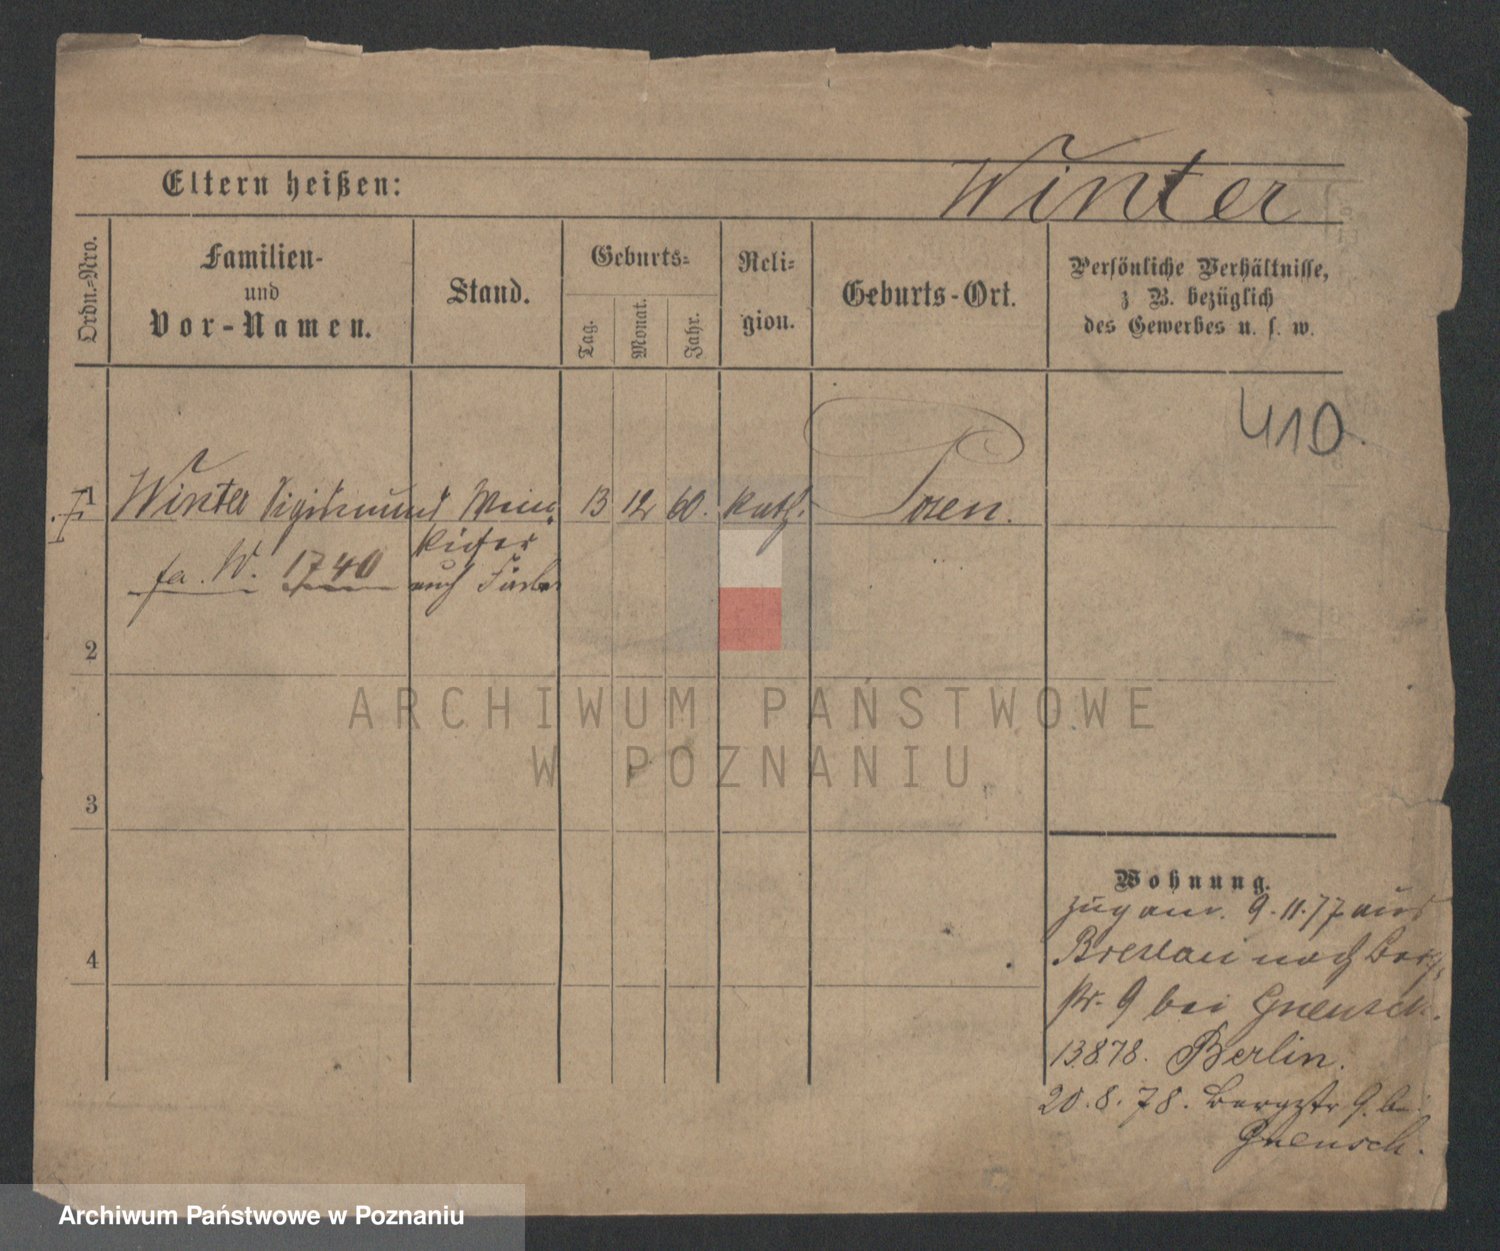 Winter
Eltern heißen:
Ordn.-Nro.
Familien-
und
Vor-Namen.
Stand.
Geburts-
Tag.
Monat.
Jahr.
Reli-
gion.
Geburts-Ort.
Persönliche Verhältnisse,
z B. bezüglich
des Gewerbes u. s. w.
410.
1 Winter Sigismund Wein 13 12 60. kath. Posen.
küfer
fa. W. 1740 auch Färber
2
3
4
ARCHIWUM PAŃSTWOWE
W POZNANIU
Wohnung.
zugam. 9.11.77 aus
Breslau nach Berg
str. 9 bei Gneusch.
13.8.78. Berlin.
20.8.78. Bergstr 9. bei
Gneusch.
Archiwum Państwowe w Poznaniu